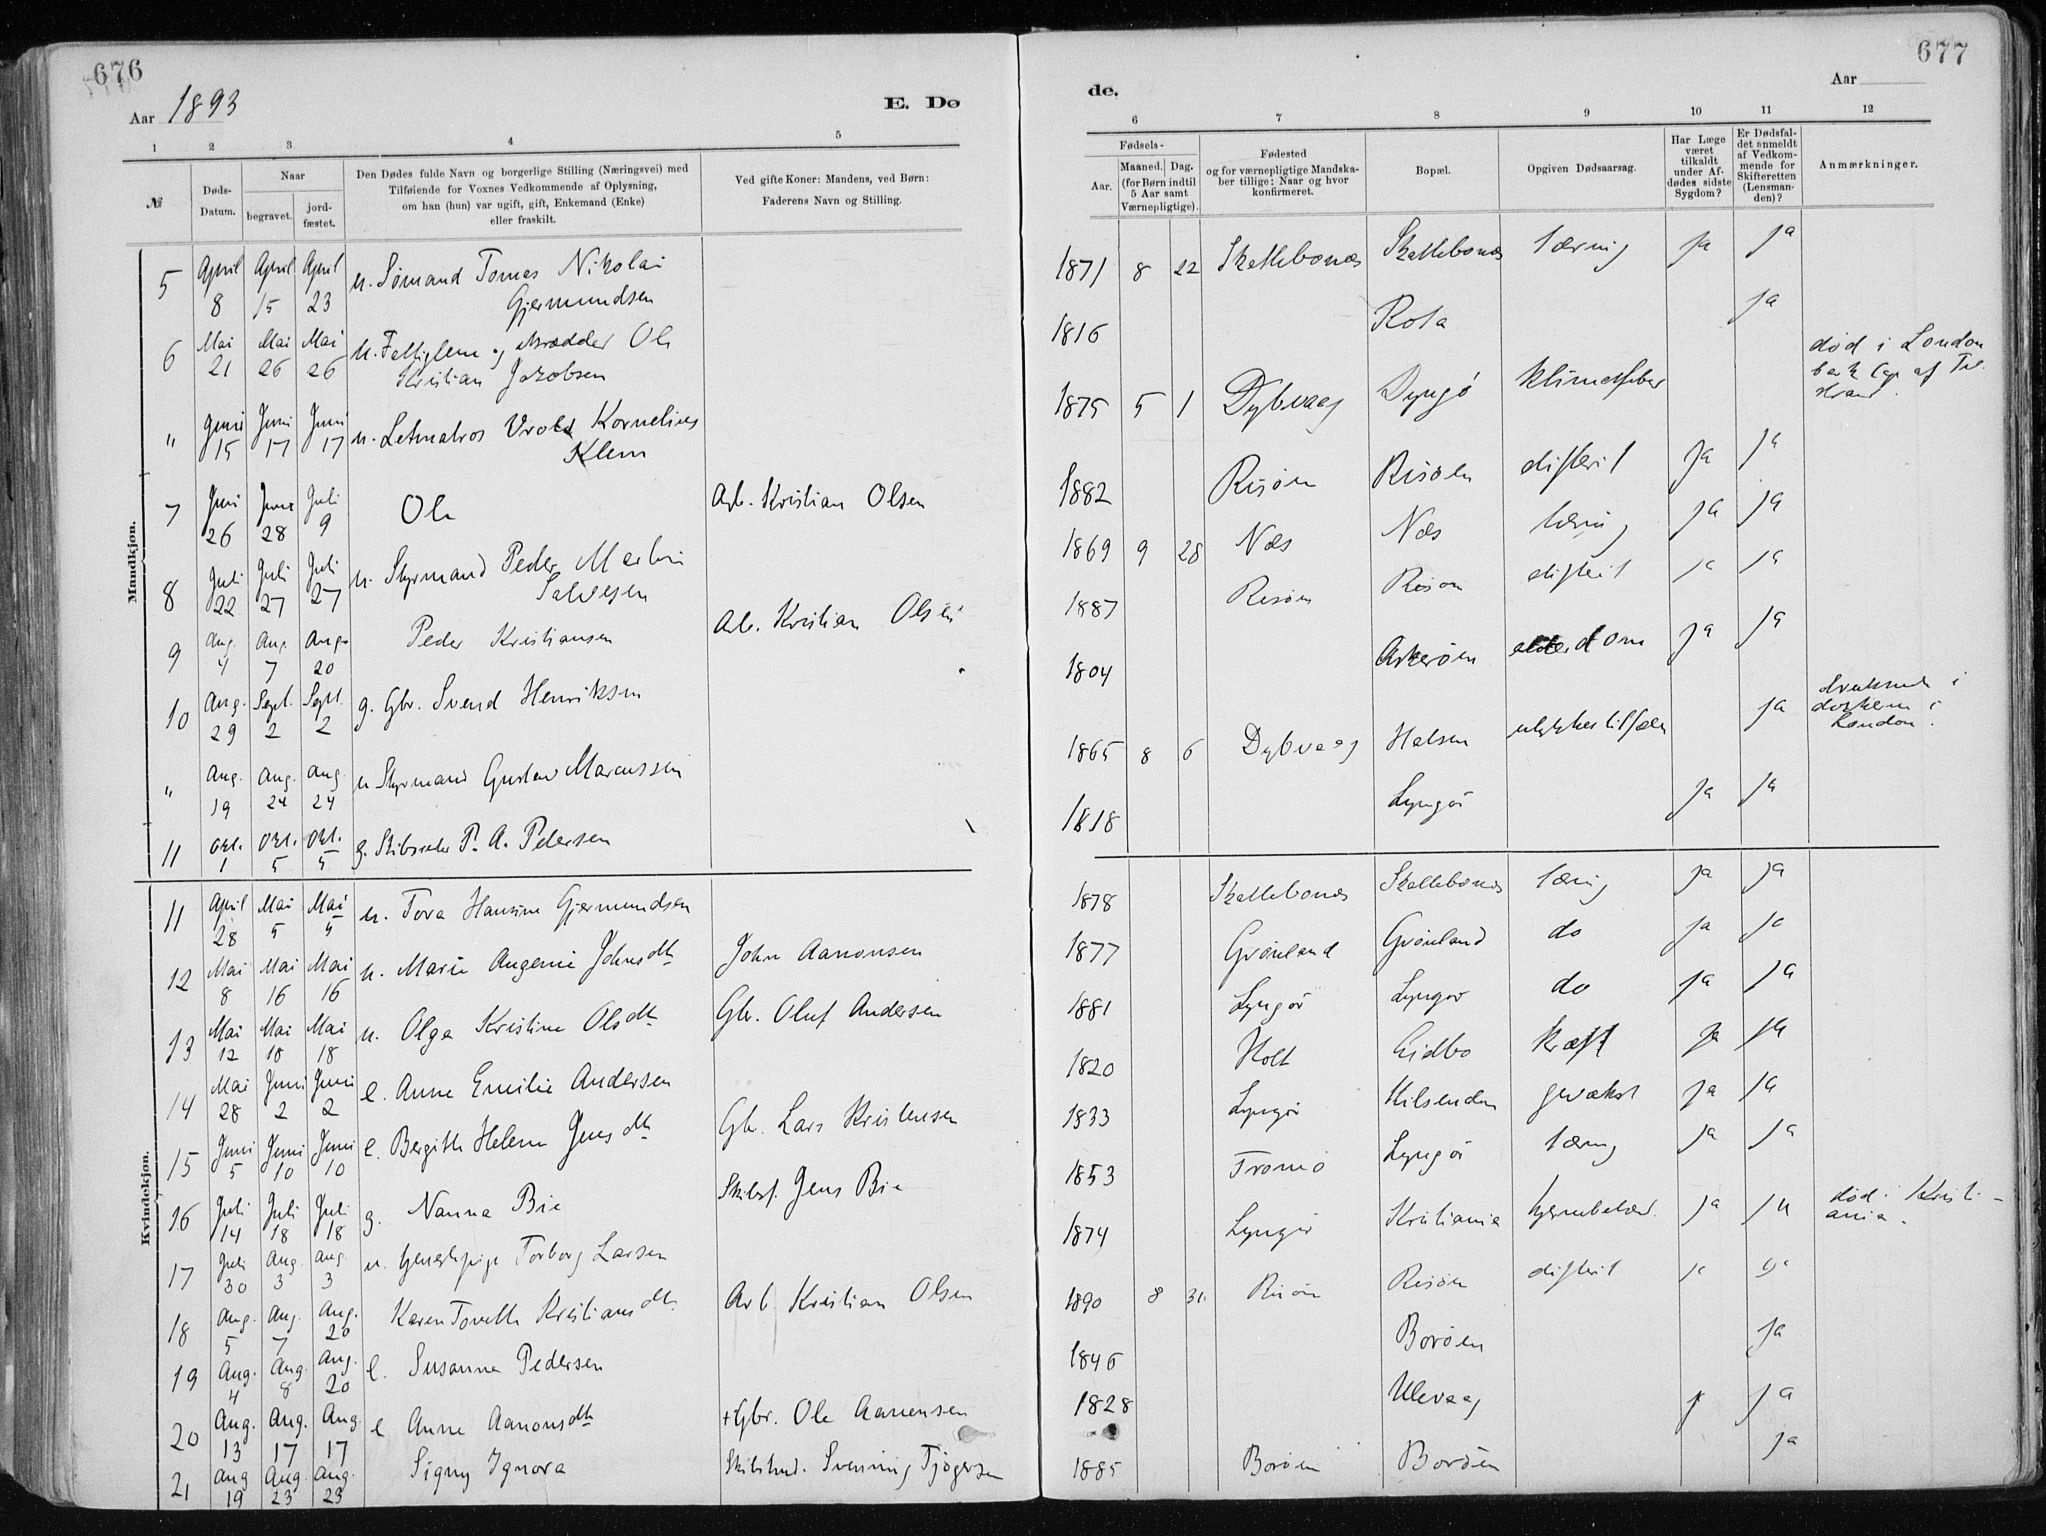 676
Aar 1893
E. Dø
1 2 3 4 5
№
Døds-
Datum.
Naar
begravet.
jord-
fæstet.
Den Dødes fulde Navn og borgerlige Stilling (Næringsvei) med
Tilføiende for Voxnes Vedkommende af Oplysning,
om han (hun) var ugift, gift, Enkemand (Enke)
eller fraskilt.
Ved gifte Koner: Mandens, ved Børn:
Faderens Navn og Stilling.
Mandkjøn.
5 April 8 April 15 April 23 u. Sømand Tomas Nikolai
Gjermundsen
6 Mai 21 Mai 26 Mai 26 u. Fattiglem og skrædder Ole
Kristian Jakobsen
" Juni 15 Juni 17 Juni 17 u. Letmatros Vrold Kornelius
Klem
7 Juni 26 Juni 28 Juli 9 Ole Arb. Kristian Olsen
8 Juli 22 Juli 27 Juli 27 u. Styrmand Peder Martin
Salvesen
9 Aug. 4 Aug. 7 Aug. 20 Peder Kristiansen Arb. Kristian Olsen
10 Aug. 29 Sept. 2 Sept. 2 g. Gbr. Svend Henriksen
" Aug. 19 Aug. 24 Aug. 24 u Styrmand Gustav Marcussen
11 Okt. 1 Okt. 5 Okt. 5 g. Skibsreder P. A. Pedersen
Kvindekjøn.
11 April 28 Mai 5 Mai 5 u. Tora Hansine Gjermundsen
12 Mai 8 Mai 16 Mai 16 u. Marie Augenie Johnsdtr John Aanonsen
13 Mai 12 Mai 18 Mai 18 u. Olga Kristine Olsdtr Gbr. Oluf Andersen
14 Mai 28 Juni 2 Juni 2 e. Anne Emilie Andersen
15 Juni 5 Juni 10 Juni 10 e. Bergith Helene Jensdtr Gbr. Lars Kristensen
16 Juli 14 Juli 18 Juli 18 g. Nanna Bie Skibsf. Jens Bie
17 Juli 30 Aug. 3 Aug. 3 u. Torborg Larsen
18 Aug. 5 Aug. 7 Aug. 20 Karen Tomette Kristiansdtr Arb. Kristian Olsen
19 Aug. 4 Aug. 8 Aug. 20 e. Susanne Pedersen
20 Aug. 13 Aug. 17 Aug. 17 e Anne Aanonsdtr +Gbr. Ole Aanensen
21 Aug 19 Aug. 23 Aug. 23 Signy Ignora Svenning Tjøgersen
677
Aar
de.
6 7 8 9 10 11 12
Fødsels-
Aar.
Maaned. Dag.
(for Børn indtil
5 Aar samt
Værnepligtige).
Fødested
og for værnepligtige Mandska-
ber tillige: Naar og hvor
konfirmeret.
Bopæl.
Opgiven Dødsaarsag.
Har Læge
været
tilkaldt
under Af-
dødes sidste
Sygdom?
Er Dødsfal-
det anmeldt
af Vedkom-
mende for
Skifteretten
(Lensman-
den)?
Anmærkninger.
1871 8 22 Skattebonæs Skattebonæs tæring ja ja
1816 Rota ja
1875 5 1 Dybvaag Lyngø klimatfeber død i London
1882 Risøen Risøen difterit ja ja
1869 9 28 Næs Næs tæring ja ja
1887 Risøen Risøen difterit ja ja
1804 Askerøen alderdom ja ja
1865 8 6 Dybvaag Halsen ulykkestilfælde ja druknede i
dokken i
London.
1818 Lyngør ja ja
1878 Skattebonæs Skattebonæs tæring ja ja
1877 Grønland Grønland do ja ja
1881 Lyngør Lyngør do ja ja
1820 Holt Lidbo kræft ja ja
1833 Lyngør Kilsenden gevækst ja ja
1853 Tromø Lyngør tæring ja ja
1874 Lyngør Kristiania hjernebetænd. ja ja død i Kristi-
ania.
1890 8 31 Risøen Risøen difterit ja ja
1846 Borøen ja
1828 Ulevaag ja
1885 Borøen Borøen ja